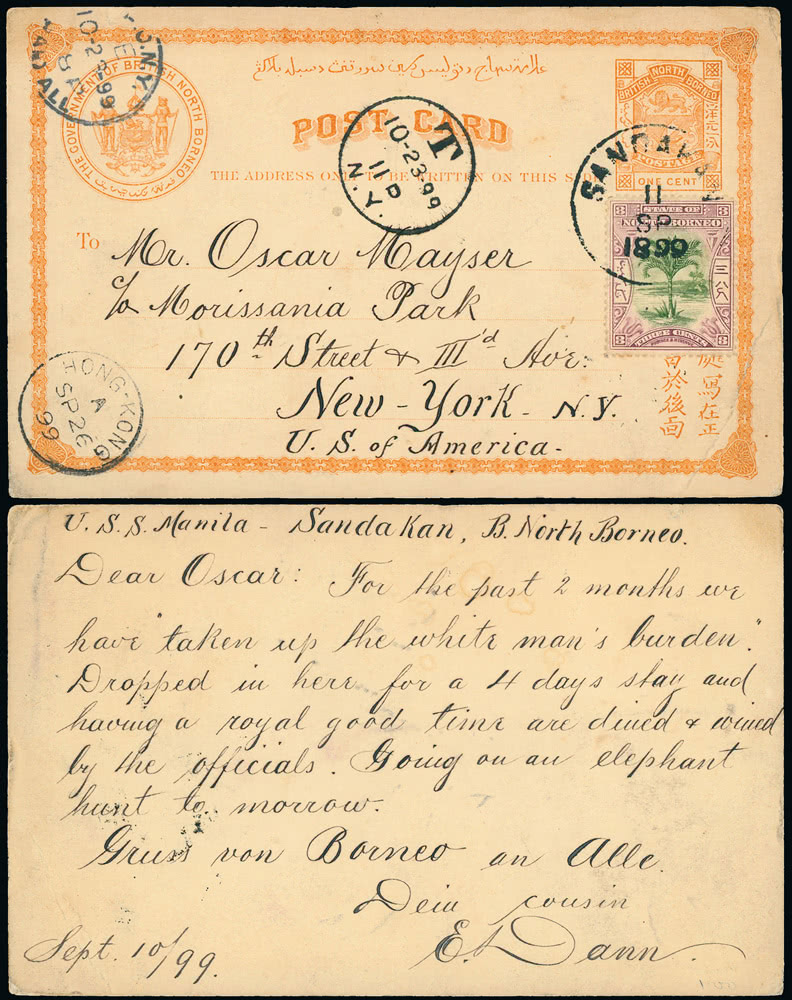 THE GOVERNMENT OF BRITISH NORTH BORNEO
POST CARD
THE ADDRESS ONLY TO BE WRITTEN ON THIS SIDE
BRITISH NORTH BORNEO
POSTAGE
ONE CENT
N.Y.
10-2 99
PAID ALL
T
10-23-99
11 P
N.Y.
SANDAKAN
11
SP
1899
3 STATE OF 3
NORTH BORNEO
三
3 THREE CENTS 3
To Mr. Oscar Mayser
c/o Morissania Park
170th Street & IIId Ave:
New-York. N.Y.
U. S. of America.
HONG-KONG
A
SP 26
99
處寫在正
由於後面
U.S.S. Manila - Sandakan, B. North Borneo.
Dear Oscar: For the past 2 months we
have "taken up the white man's burden".
Dropped in here for a 4 days stay and
having a royal good time are dined & wined
by the officials. Going on an elephant
hunt to morrow.
Gruss von Borneo an Alle.
Dein cousin
Sept. 10/99. E. Dann